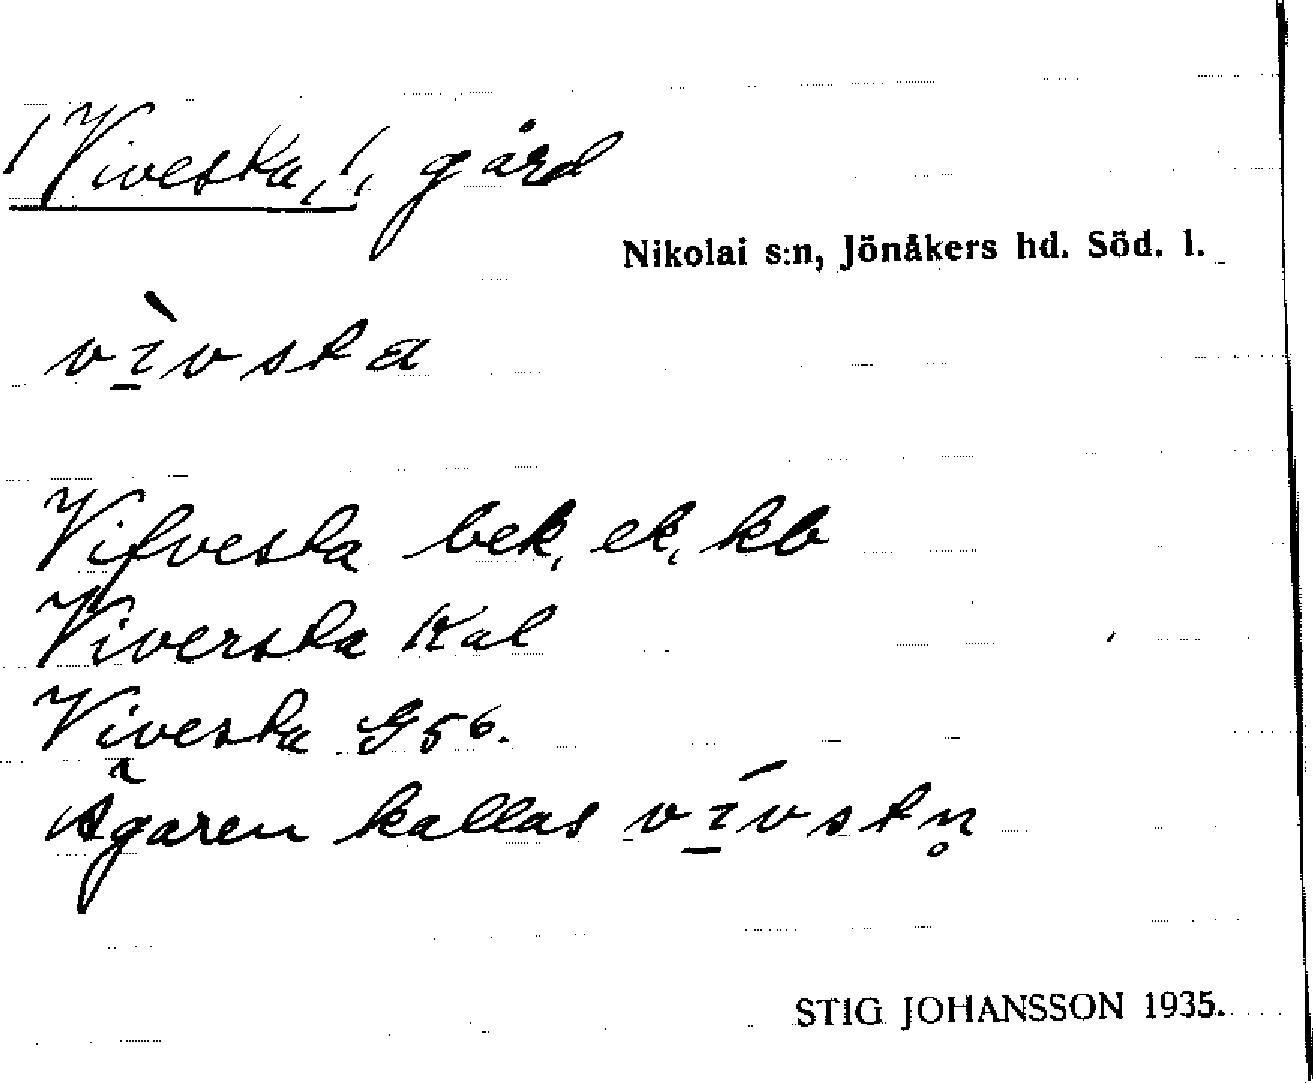 /Vivesta,/, gård
Nikolai s:n, Jönåkers hd. Söd. l.
vì̱vsta
Vifvesta bek, ek, kb
Viversta Kal
Vivesta G56.
Ägaren kallas ví̱vstn̥
STIG JOHANSSON 1935.